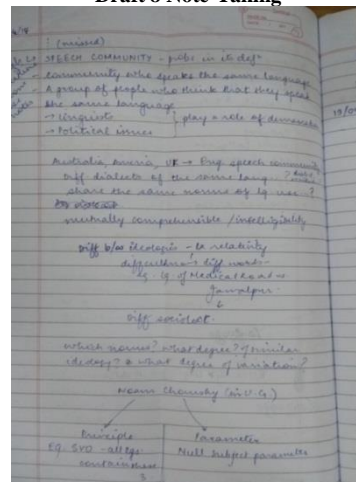 Draft 8 Note-Taking
1 (missed)
SPEECH COMMUNITY - probs in its defn
- community who speaks the same language
- A group of people who think that they speak
the same language
→ Linguists
→ Political issues } play a role of
Australia, America, UK → Eng. speech community
Diff. dialects of the same lang. ?
share the same norms of lg use ?
mutually comprehensible / intelligibility
Diff b/w ideologies - relativity
diff cultures diff
eg. lg. of Medical
↓
Diff sociolect.
whose norms? what degree? of similar
ideology? & what degree of variation?
Noam Chomsky (in U.G.)
Principle
Parameter
Eg: SVO - all lgs
contain these
3
Null subject parameter